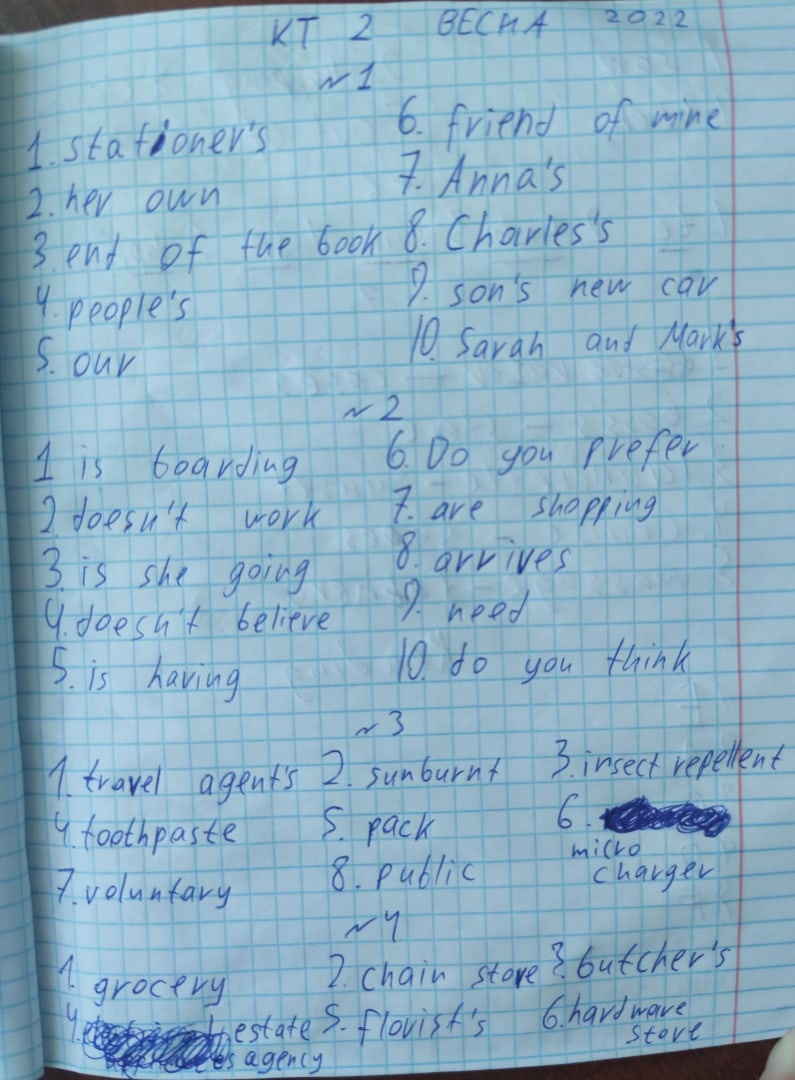 КТ 2 ВЕСНА 2022
~1
1. stationer's
2. her own
3. end of the book
4. people's
5. our
6. friend of mine
7. Anna's
8. Charles's
9. son's new car
10. Sarah and Mark's
~2
1 is boarding
2. doesn't work
3. is she going
4. doesn't believe
5. is having
6. Do you prefer
7. are shopping
8. arrives
9. need
10. do you think
~3
1. travel agent's 2. sunburnt 3. insect repellent
4. toothpaste 5. pack 6.
micro
charger
7. voluntary 8. public
~4
1. grocery 2. chain store 3. butcher's
4. estate 5. florist's 6. hardware
store
agency